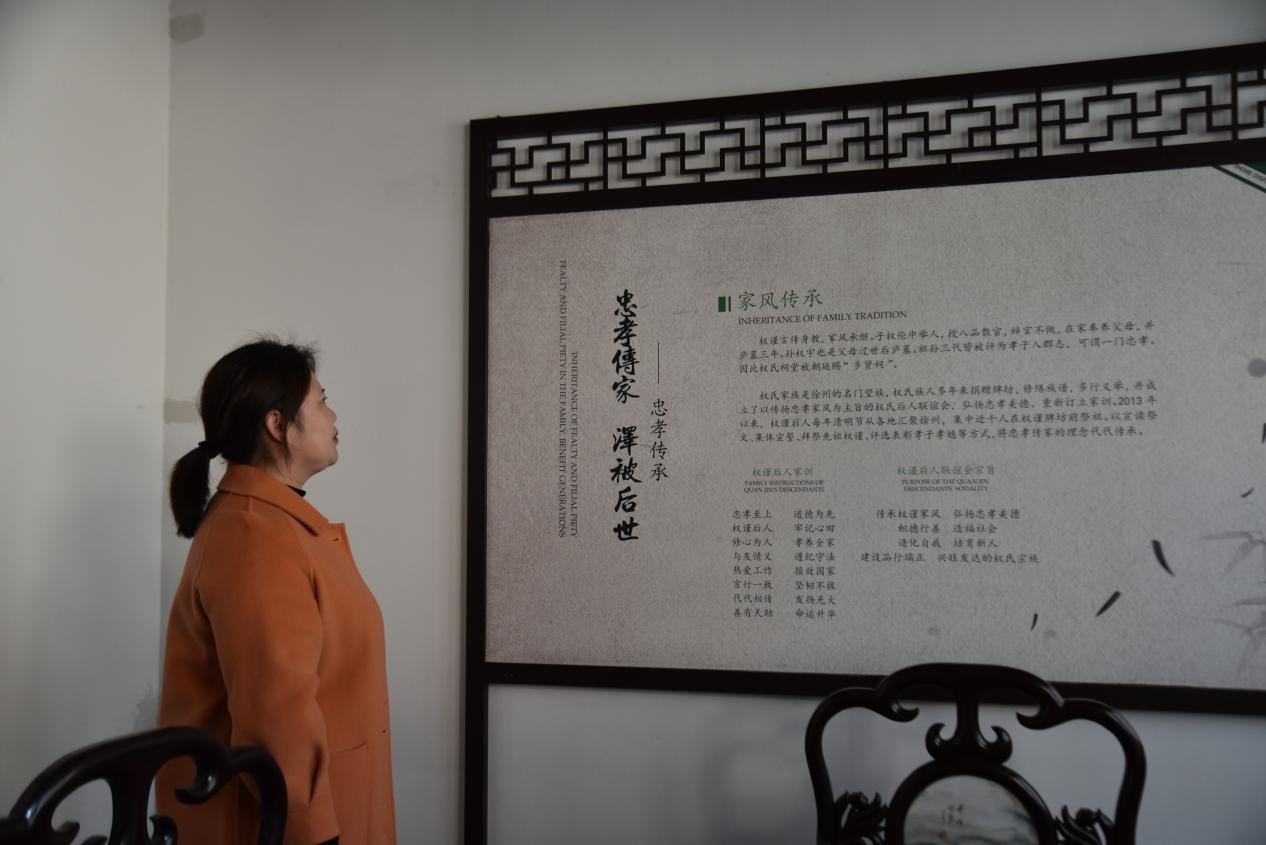 忠孝傳家 澤被后世
——忠孝传承
INHERITANCE OF FEALTY AND FILIAL PIETY
FEALTY AND FILIAL PIETY IN THE FAMILY, BENEFIT GENERATIONS
家风传承
INHERITANCE OF FAMILY TRADITION
权谨言传身教,家风承继。子权伦中举人,授八品散官,辞官不做,在家奉养父母,并
庐墓三年。孙权宇也是父母过世后庐墓。祖孙三代皆被评为孝子入郡志,可谓一门忠孝。
因此权氏祠堂被朝廷赐“乡贤祠”。
权氏家族是徐州的名门望族,权氏族人多年来捐赠牌坊、修缮族谱、多行义举,并成
立了以传扬忠孝家风为主旨的权氏后人联谊会,弘扬忠孝美德、重新订立家训。2013年
以来,权谨后人每年清明节从各地汇聚徐州,集中近千人在权谨牌坊前祭祖。以宣读祭
文、集体宣誓、拜祭先祖权谨、评选表彰孝子孝媳等方式,将忠孝传家的理念代代传承。
权谨后人家训
FAMILY INSTRUCTIONS OF
QUAN JIN'S DESCENDANTS
忠孝至上 道德为先
权谨后人 牢记心田
修心为人 孝养全家
与友情义 遵纪守法
热爱工作 报效国家
言行一致 坚韧不拔
代代相传 发扬光大
善有天助 命运升华
权谨后人联谊会宗旨
PURPOSE OF THE QUAN JIN
DESCENDANTS' SODALITY
传承权谨家风 弘扬忠孝美德
积德行善 造福社会
造化自我 培育新人
建设品行端正 兴旺发达的权氏宗族